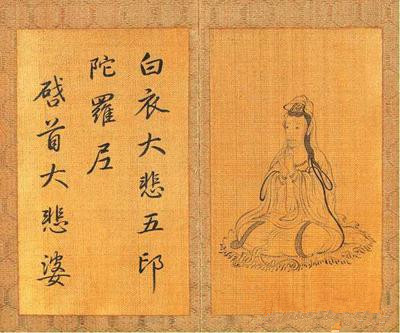 白衣大悲五印
陀羅尼
啓首大悲婆